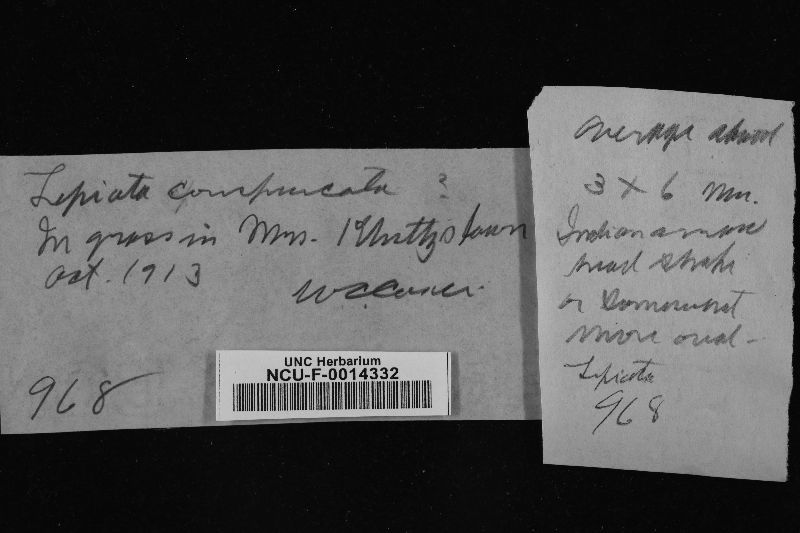 Lepiota conspurcata ?
In grass in Mrs. Kluttz's lawn
Oct. 1913
W C Coker.
968
UNC Herbarium
NCU-F-0014332
Average about
3 x 6 Mm.
Indian arrow
head shape
or somewhat
more oval -
Lepiota
968